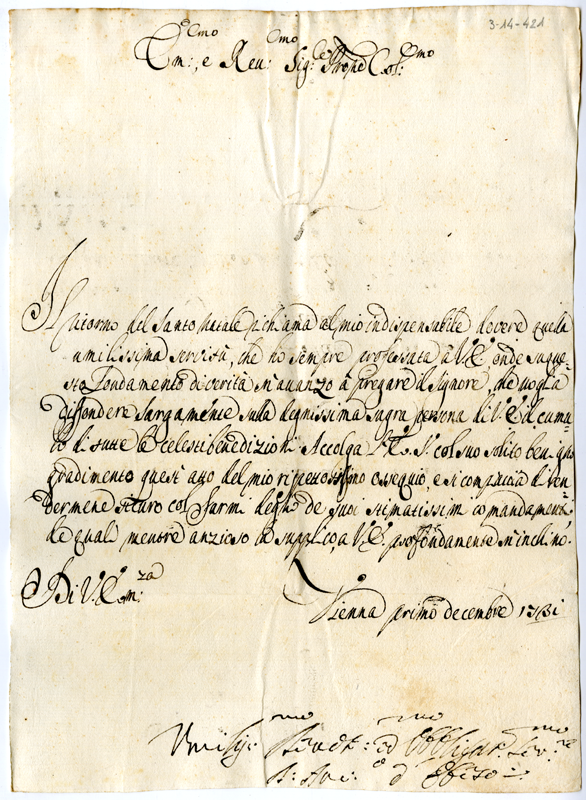 3-14-421
Em:mo, e Reu:mo Sig:re Prone Col:mo
Il ritorno del Santo Natale richiama al mio indispensabile dovere quella
umilissima servitù, che hò sempre professata à V.E. onde su que-
sto fondamento di verità m'auanzo à pregare il Signore, che voglia
diffondere largamente sulla degnissima sagra persona di V.E. il cumu-
lo di tutte le celesti benedizioni. Accolga V.E. col suo solito benigno
gradimento quest' atto del mio rispettosissimo ossequio, e si compiaccia di ren-
dermene sicuro col farmi degno de suoi stimatissimi comandamenti
de quali mentre anzioso la supplico, a V.E. profondamente m'inchino.
Di V.Em:za
Vienna primo decembre 1731
Vmilis:mo Deuot:mo ed Obbligat:mo Ser:re
A: Arc: d'Efeso